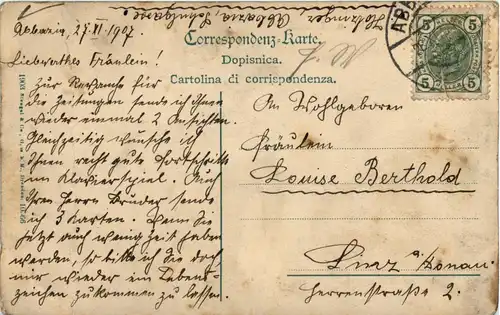 Abbazia, 27/VI 1907
Correspondenz-Karte.
Dopisnica.
Cartolina di corrispondenza.
Liebwertes Fräulein!
Zur Revanche für
die Zeitungen sende ich Ihnen
wieder einmal 2 Ansichten.
Gleichzeitig wünsche ich
Ihnen recht gute Fortschritte
im Klavierspiel. Auch
Ihrem Herrn Bruder sende
ich 3 Karten. Wenn Sie
jetzt auch wenig Zeit haben
werden, so bitte ich Sie doch
mir wieder ein Lebens-
zeichen zukommen zu lassen.
An Wohlgeboren
Fräulein
Louise Berthold
Linz a/Donau.
Herrenstraße 2.
ABB
5 5
5 5